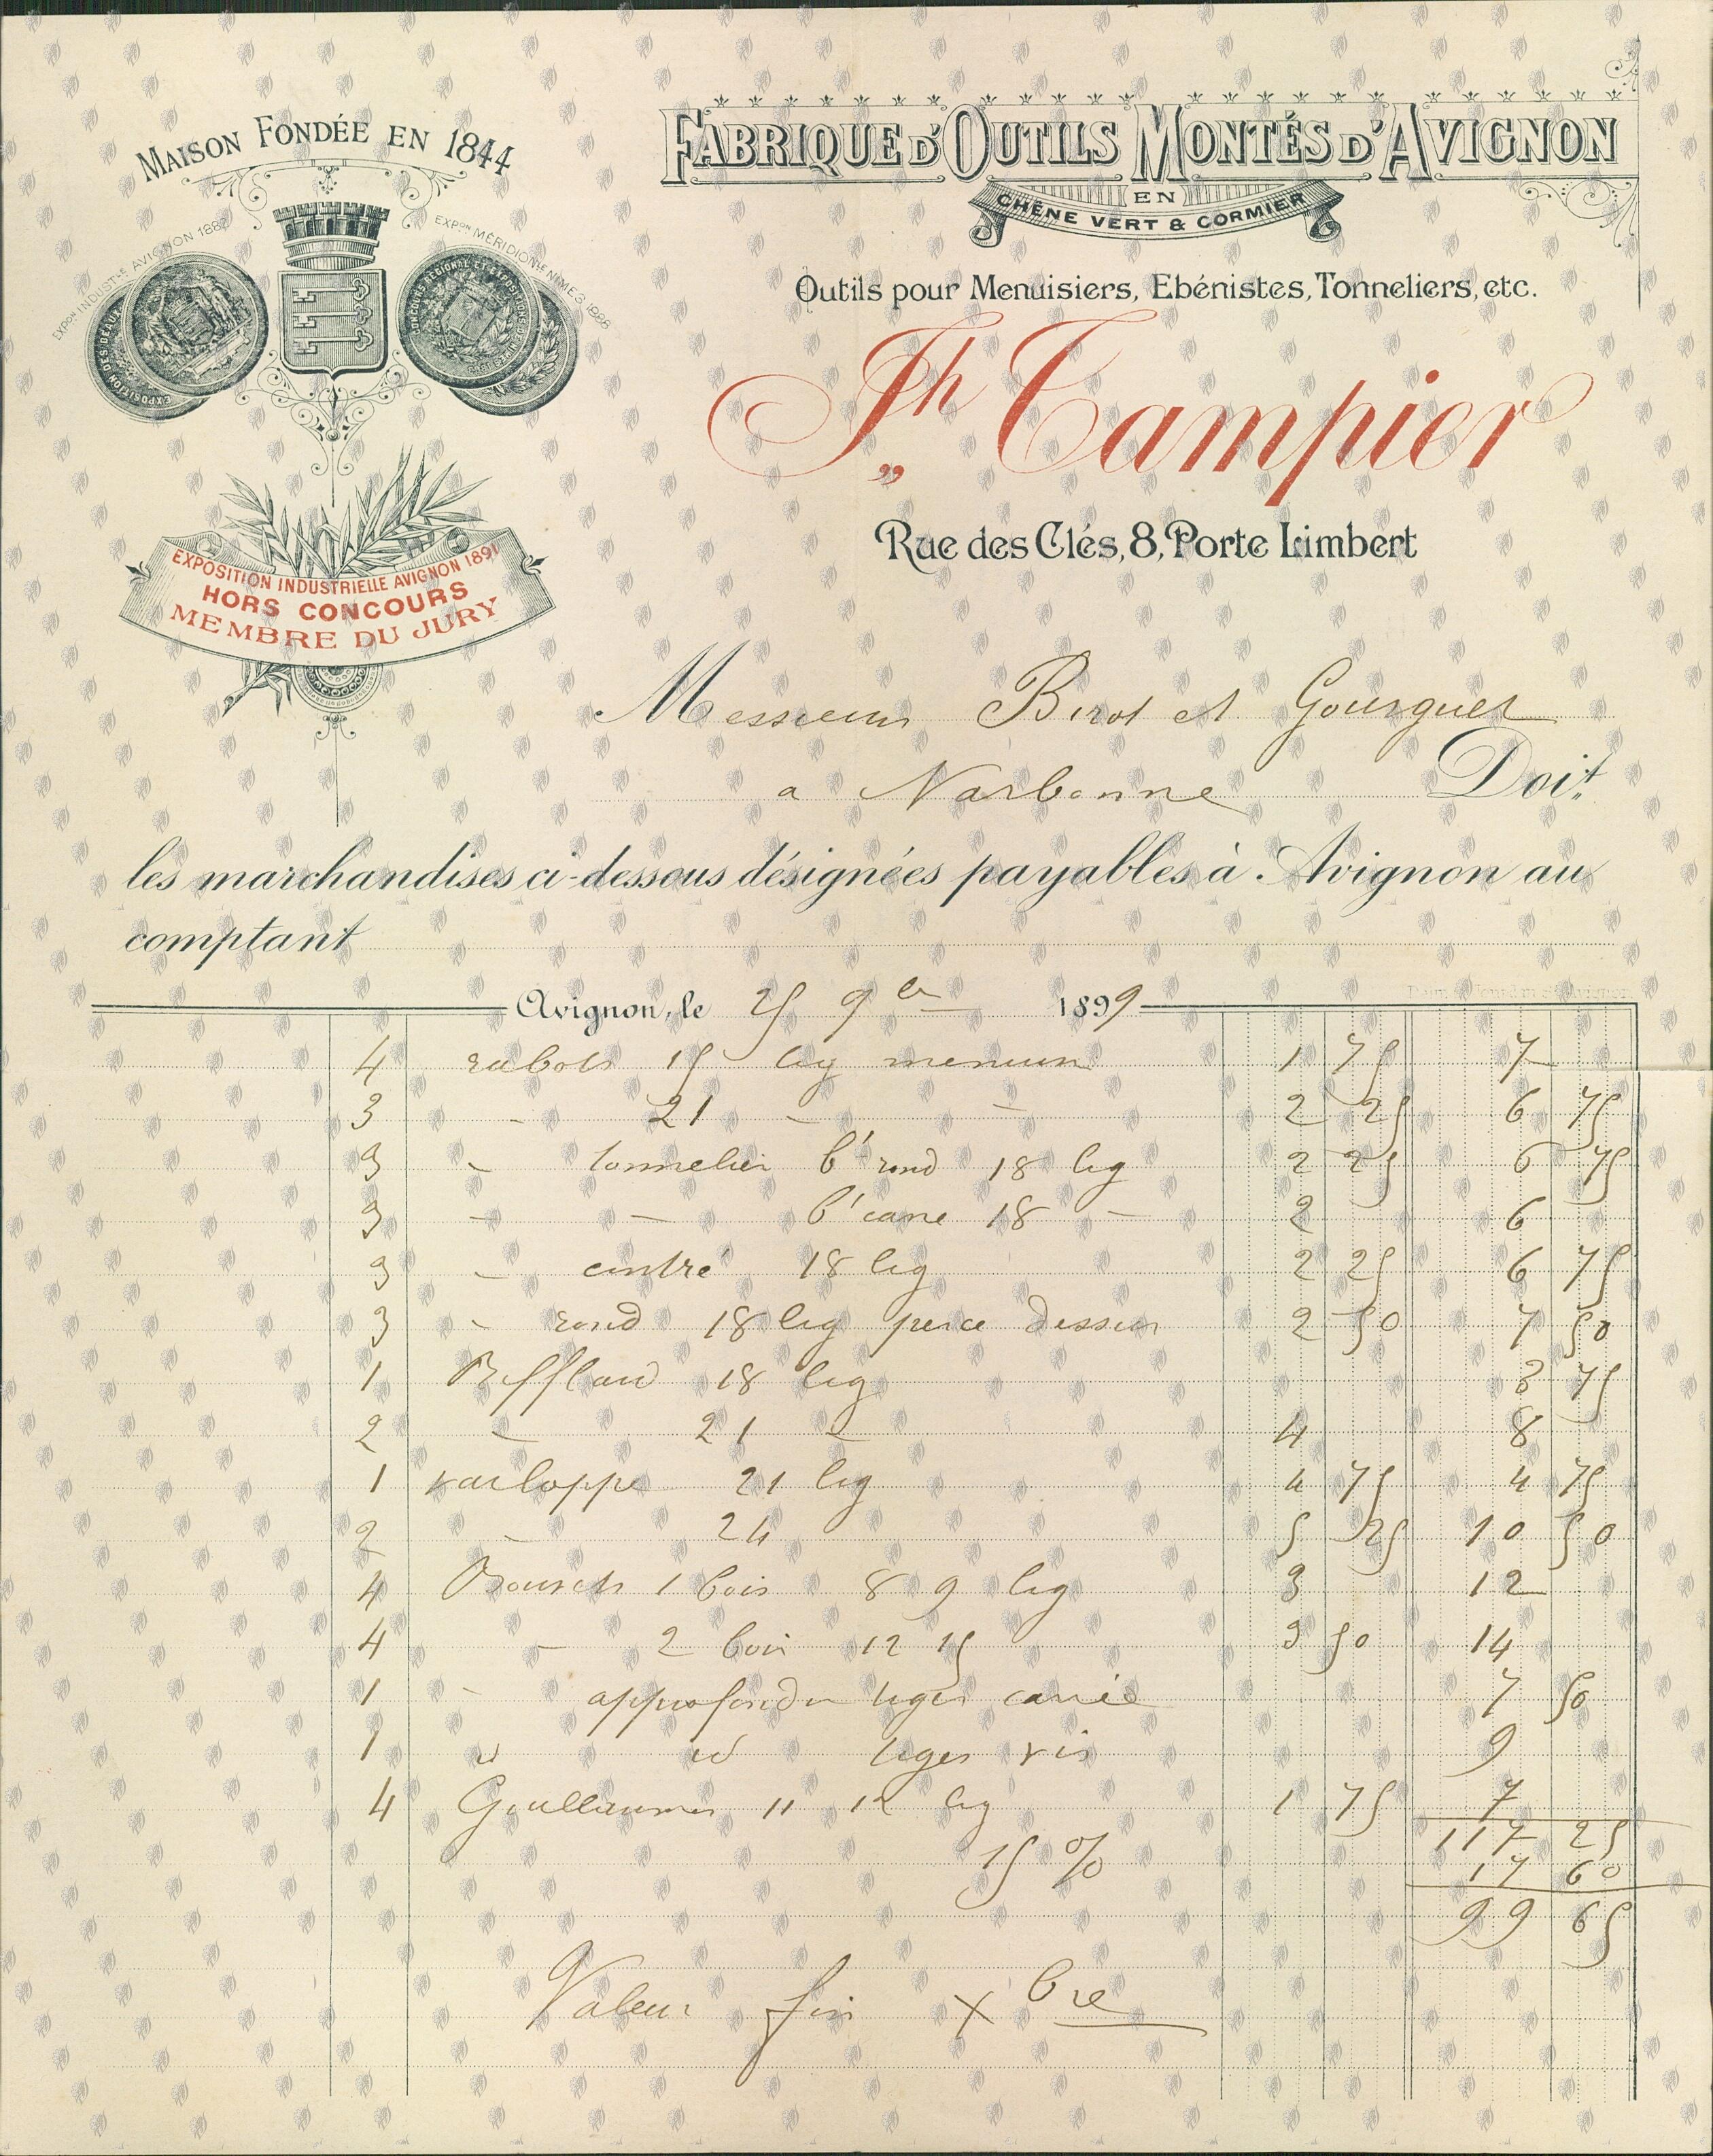 MAISON FONDÉE EN 1844
FABRIQUE D'OUTILS MONTÉS D'AVIGNON
EN
CHÊNE VERT & CORMIER
EXPON INDUSTLE AVIGNON 1882
EXPON MÉRIDIONLE NIMES 1888
Outils pour Menuisiers, Ebénistes, Tonneliers, etc.
Jh Tampier
Rue des Clés, 8, Porte Limbert
EXPOSITION INDUSTRIELLE AVIGNON 1891
HORS CONCOURS
MEMBRE DU JURY
Messieurs Birot et Gourguet
a Narbonne Doit
les marchandises ci-dessous désignées payables à Avignon au
comptant
Avignon, le 25 9bre 1899
4 rabots 15 lig menuis 1 75 7
3 - 21 - - 2 25 6 75
3 - tonnelier bt rond 18 lig 2 25 6 75
3 - - bt carré 18 - 2 6
3 - cintré 18 lig 2 25 6 75
3 - rond 18 lig perce dessus 2 50 7 50
1 Rifflard 18 lig 3 75
2 - 21 - 4 8
1 varloppe 21 lig 4 75 4 75
2 - 24 5 25 10 50
4 Bouvets 1 bois 8 9 lig 3 12
4 - 2 bois 12 15 3 50 14
1 - approfondir tiges carrée 7 50
1 id id tiges vis 9
4 Guillaumes 11 12 lig 1 75 7
117 25
15 % 17 60
99 65
Valeur fin Xbre